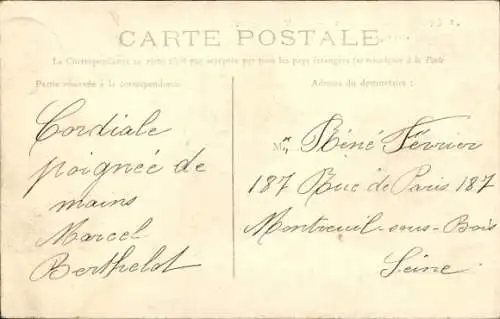 CARTE POSTALE
La Correspondance au recto n'est pas acceptée par tous les pays étrangers (se renseigner à la Poste
Partie réservée à la correspondance
Adresse du destinataire :
Cordiale
poignée de
mains
Marcel
Berthelot
M. Réné Février
187 Rue de Paris 187
Montreuil-sous-Bois
Seine